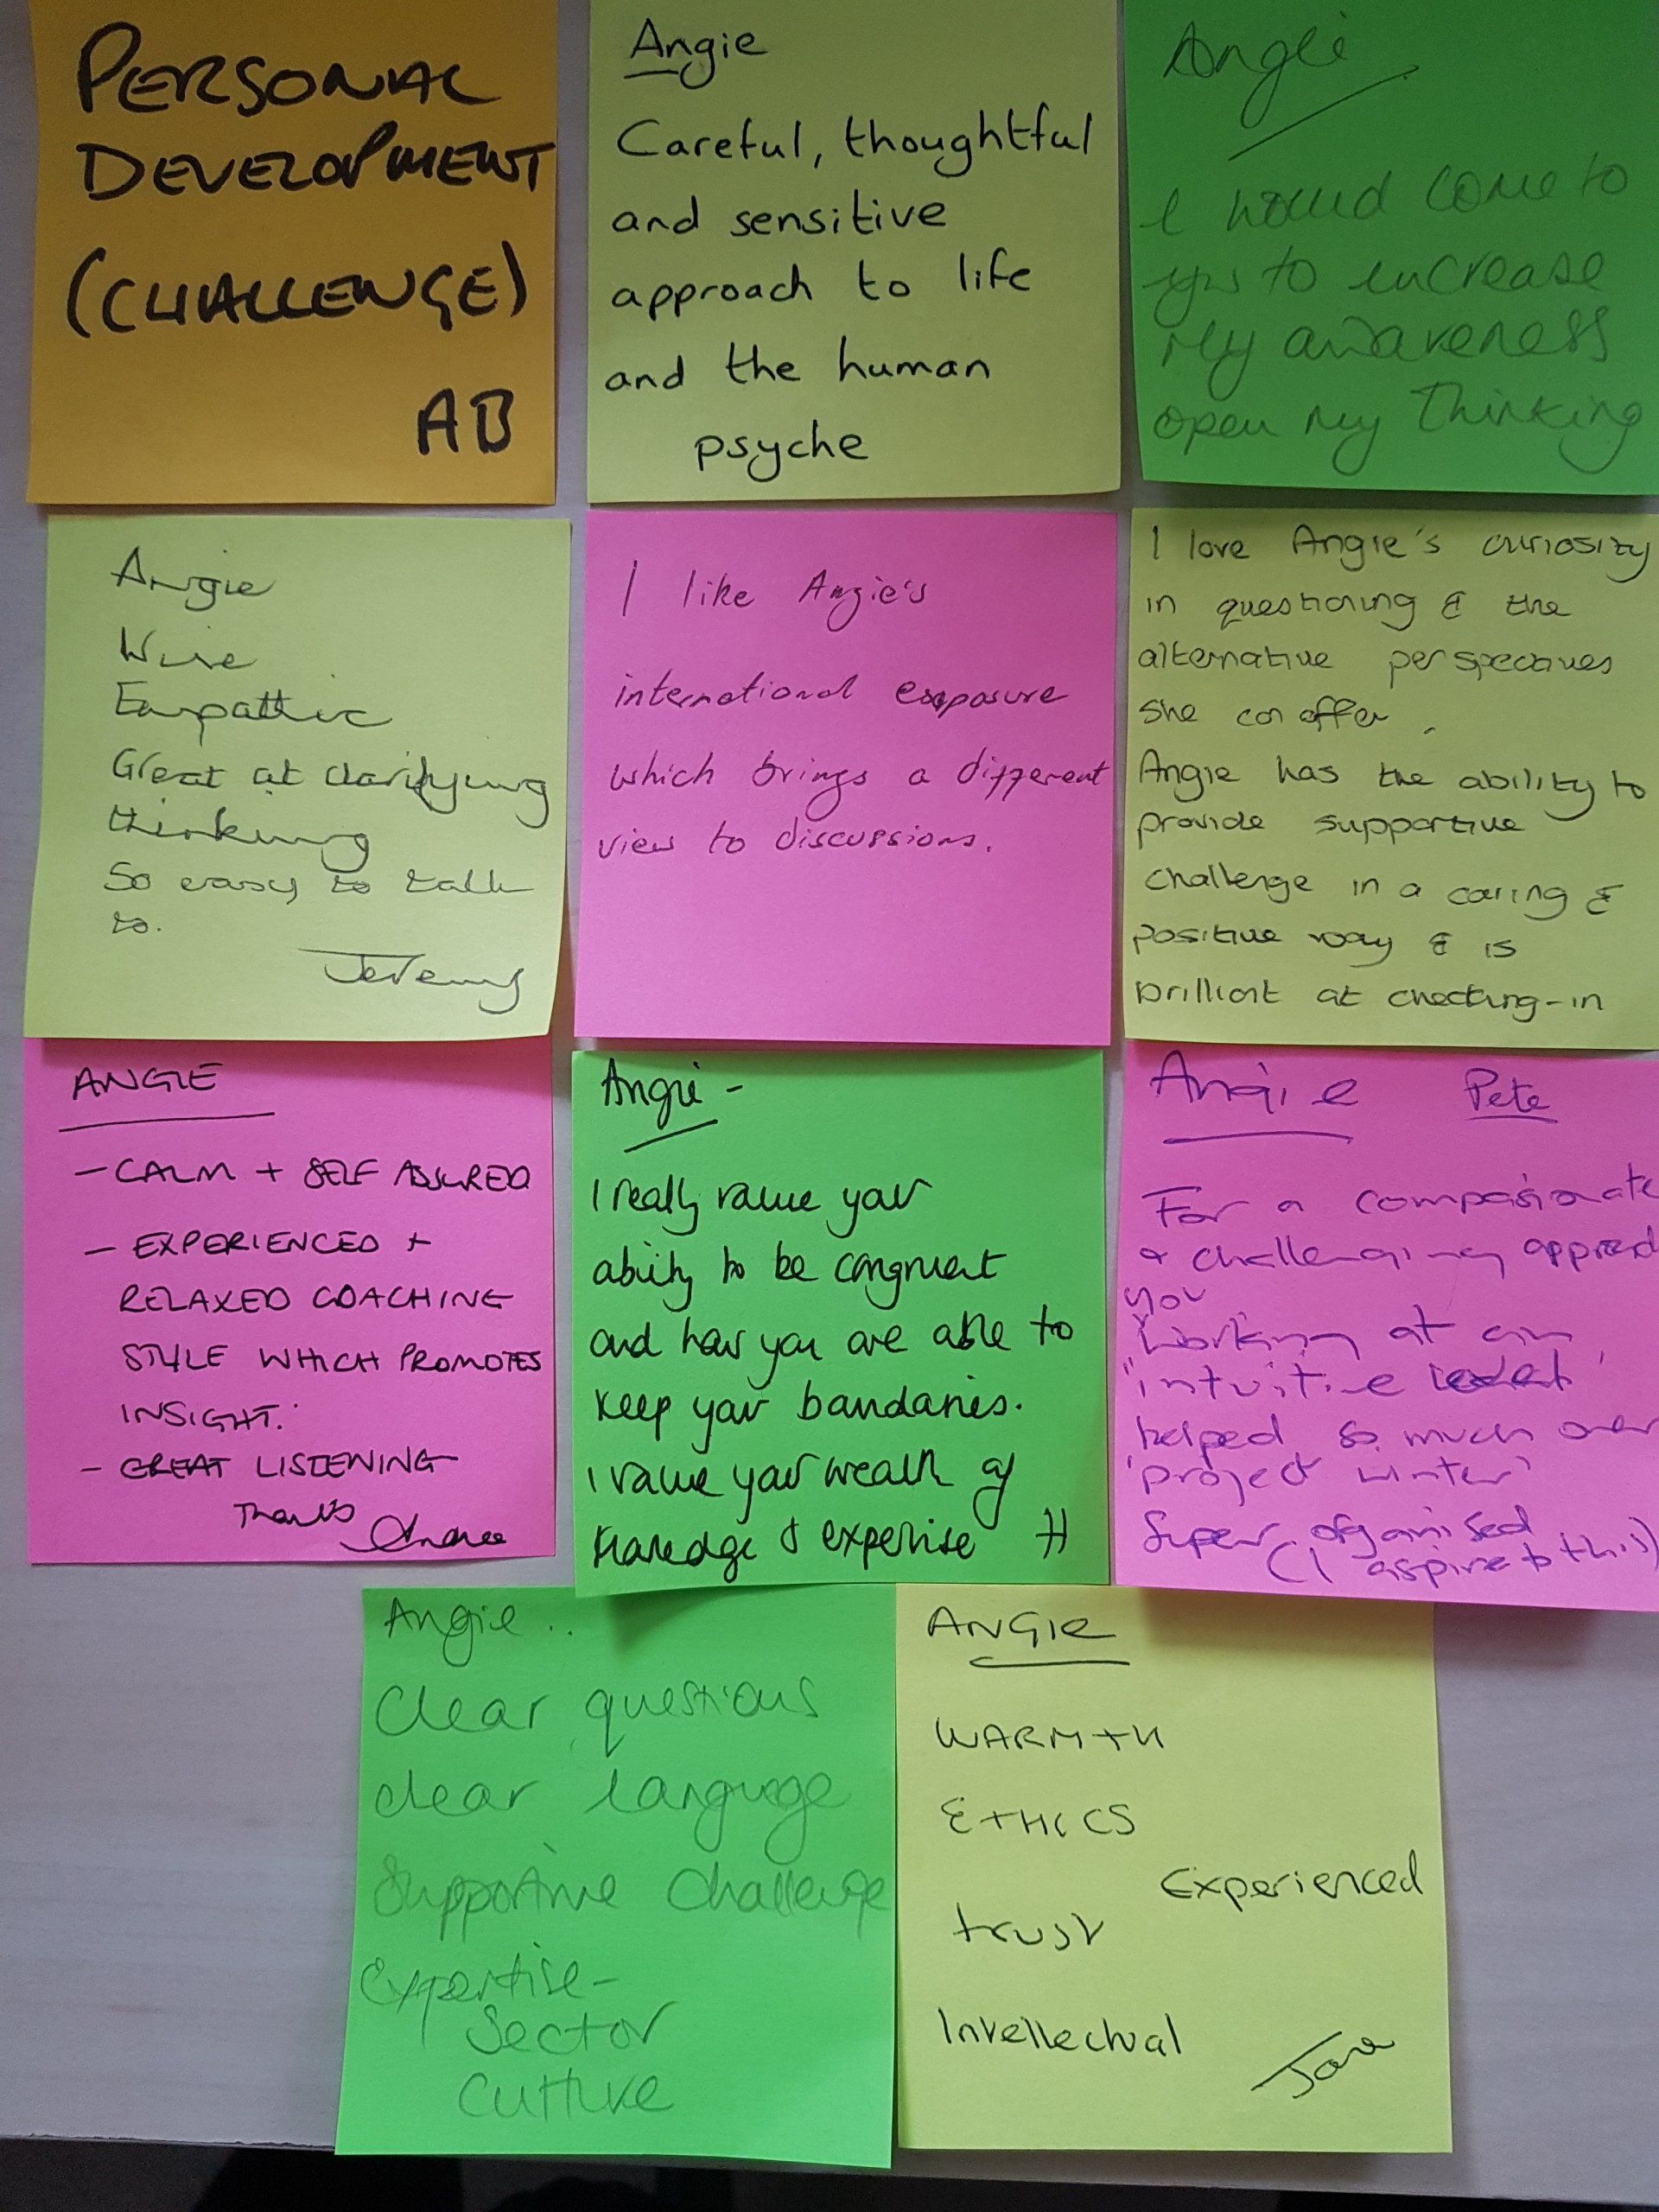 PERSONAL
DEVELOPMENT
(CHALLENGE)
AB
Angie
Careful, thoughtful
and sensitive
approach to life
and the human
psyche
Angie
I would come to
you to increase
My awareness
open my Thinking
Angie
Wise
Empathic
Great at clarifying
thinking
So easy to talk
to.
Jeremy
I like Angie's
international exposure
which brings a different
view to discussions.
I love Angie's curiosity
in questioning & the
alternative perspectives
she can offer.
Angie has the ability to
provide supportive
challenge in a caring &
positive way & is
brilliant at checking-in
ANGIE
- CALM + SELF ASSURED
- EXPERIENCED +
RELAXED COACHING
STYLE WHICH PROMOTES
INSIGHT.
- GREAT LISTENING
Thanks
Angie -
I really value your
ability to be congruent
and how you are able to
keep your boundaries.
I value your wealth of
knowledge & expertise H
Angie Pete
For a compassionate
& challenging approach
you
working at an
'intuitive level'
helped so much over
'project winter'
Super organised
(I aspire to this)
Angie..
Clear questions
clear language
Supportive Challenge
Expertise-
Sector
Culture
ANGIE
WARMTH
ETHICS
Experienced
trust
Intellectual
Jane